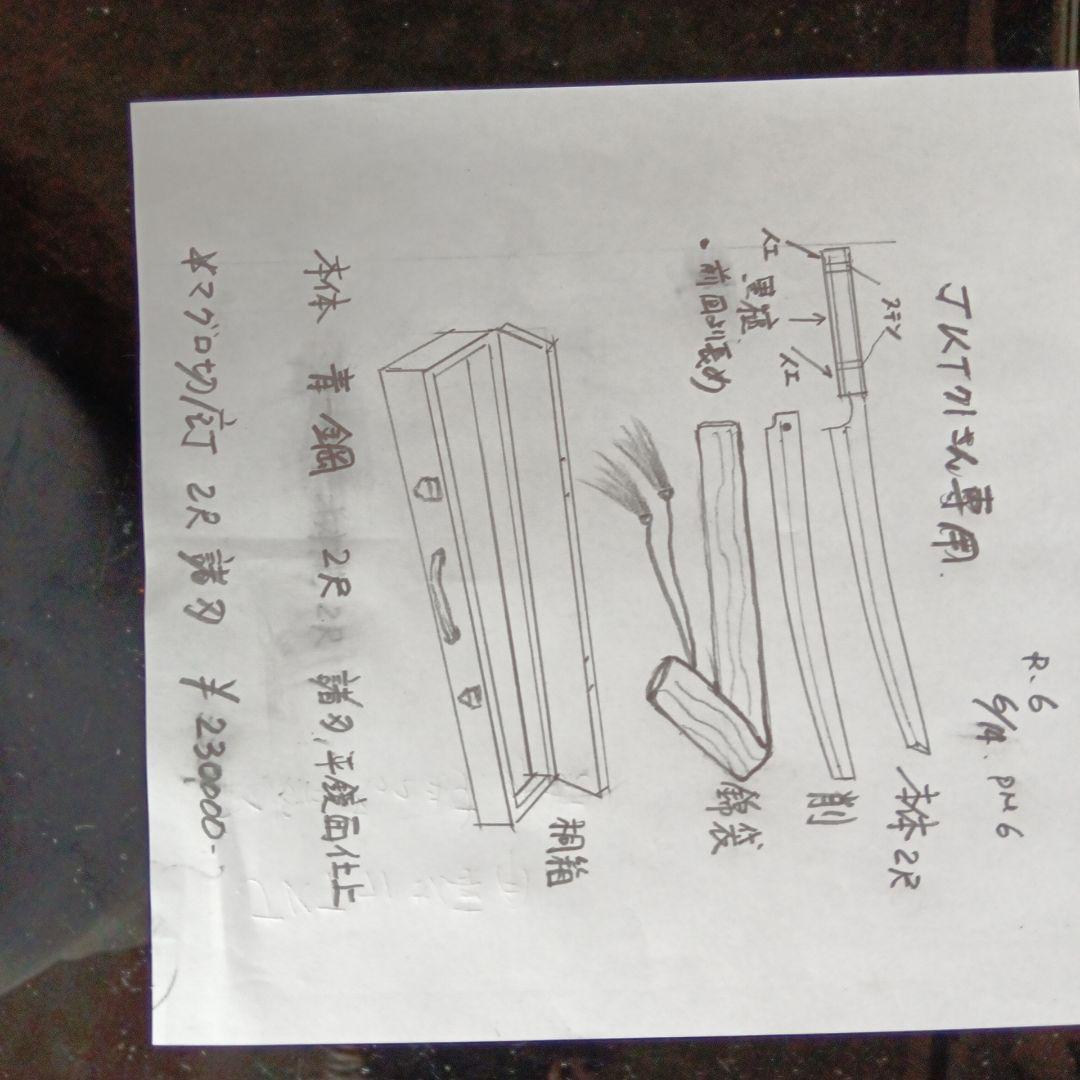 R.6
6/14. PM 6
JKTクトさん専用.
ステン
紅
黒檀
紅
・前回より長め
本体2尺
鞘
錦袋
桐箱
本体 青鋼 2尺 諸刃, 平鏡面仕上
*マグロ切庖丁 2尺 諸刃 ¥230000-